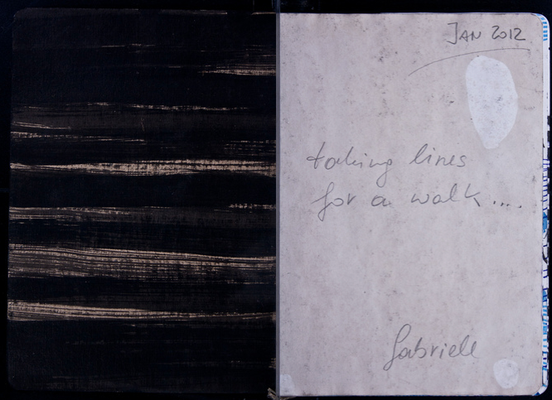 JAN 2012
taking lines
for a walk....
Gabriele